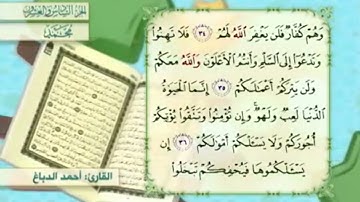 الجزء السادس والعشرون
محمد
وَهُمْ كُفَّارٌ فَلَن يَغْفِرَ اللَّهُ لَهُمْ ﴿٣٤﴾ فَلَا تَهِنُوا
وَتَدْعُوا إِلَى السَّلْمِ وَأَنتُمُ الْأَعْلَوْنَ وَاللَّهُ مَعَكُمْ
وَلَن يَتِرَكُمْ أَعْمَالَكُمْ ﴿٣٥﴾ إِنَّمَا الْحَيَوٰةُ
الدُّنْيَا لَعِبٌ وَلَهْوٌ وَإِن تُؤْمِنُوا وَتَتَّقُوا يُؤْتِكُمْ
أُجُورَكُمْ وَلَا يَسْـَٔلْكُمْ أَمْوَالَكُمْ ﴿٣٦﴾ إِن
يَسْـَٔلْكُمُوهَا فَيُحْفِكُمْ تَبْخَلُوا
القارئ: أحمد الدباغ